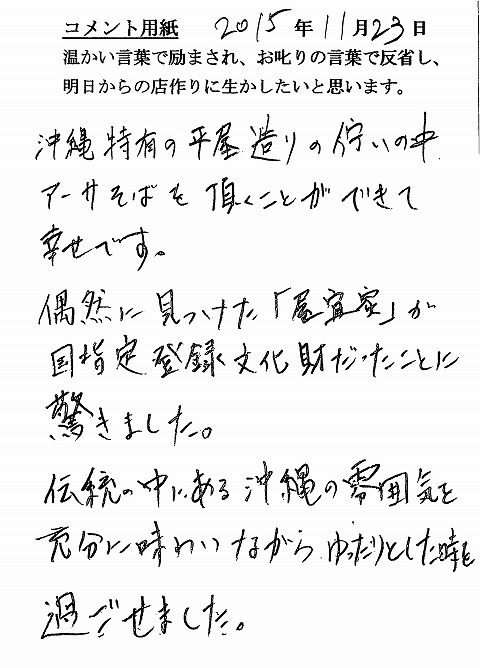 コメント用紙 2015年11月23日
温かい言葉で励まされ、お叱りの言葉で反省し、
明日からの店作りに生かしたいと思います。
沖縄特有の平屋造りの佇いの中
アーサそばを頂くことができて
幸せです。
偶然に見つけた「屋宜家」が
国指定登録文化財だったことに
驚きました。
伝統の中にある沖縄の雰囲気を
充分に味わいながらゆったりとした時を
過ごせました。